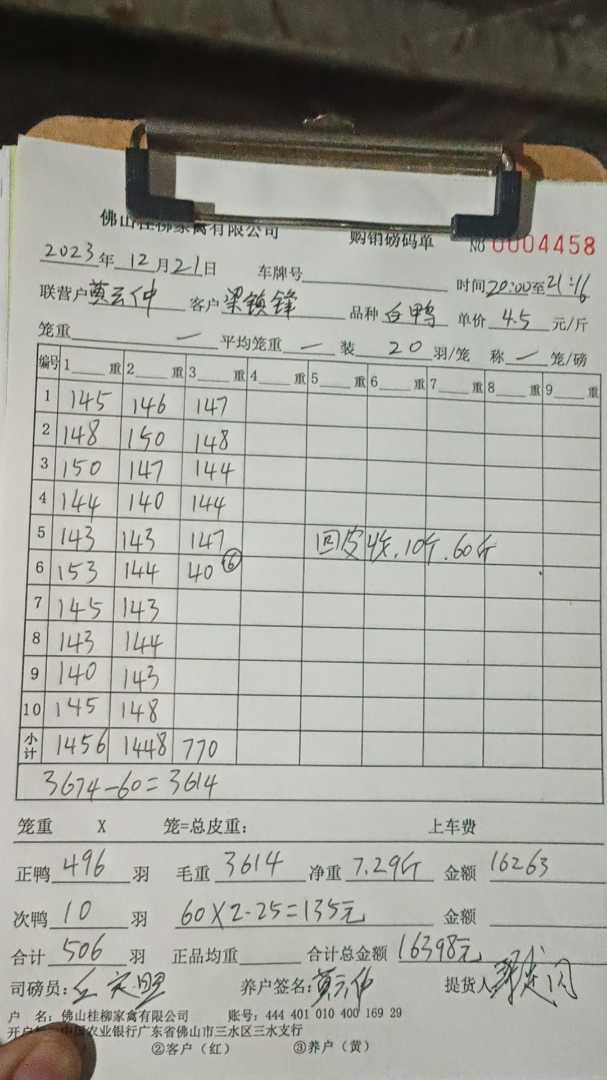 佛山桂柳家禽有限公司 购销磅码单 No 0004458
2023年12月21日 车牌号 时间20:00至21:16
联营户莫云仲 客户梁锁锋 品种白鸭 单价4.5元/斤
笼重一 平均笼重一 装20羽/笼 称一笼/磅
编号 1 重 2 重 3 重 4 重 5 重 6 重 7 重 8 重 9 重
1 145 146 147
2 148 150 148
3 150 147 144
4 144 140 144
5 143 143 147 回皮 10斤.60斤
6 153 144 40 ⑥
7 145 143
8 143 144
9 140 143
10 145 148
小计 1456 1448 770
3674-60=3614
笼重 X 笼=总皮重: 上车费
正鸭496羽 毛重3614 净重7.29斤 金额16263
次鸭10羽 60X2.25=135元 金额
合计506羽 正品均重 合计总金额16398元
司磅员: 养户签名:莫云仲 提货人
户 名: 佛山桂柳家禽有限公司 账号: 444 401 010 400 169 29
开户 中国农业银行广东省佛山市三水区三水支行
②客户(红) ③养户(黄)